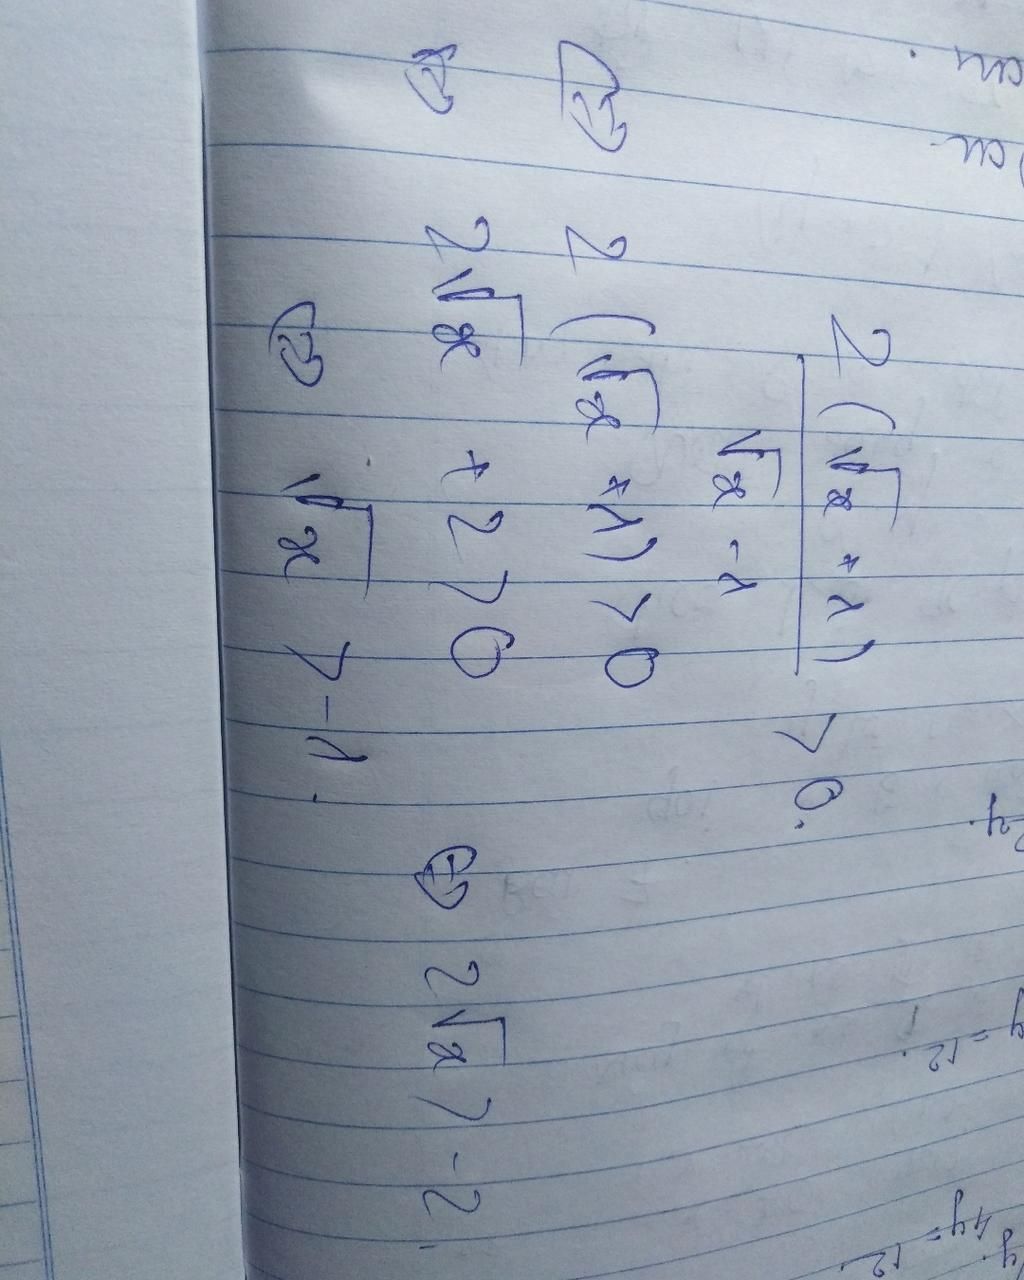 2(√x + 1)
√x - 1 > 0.
⇔ 2(√x + 1) > 0
⇔ 2√x + 2 > 0 ⇔ 2√x > -2
⇔ √x > -1.